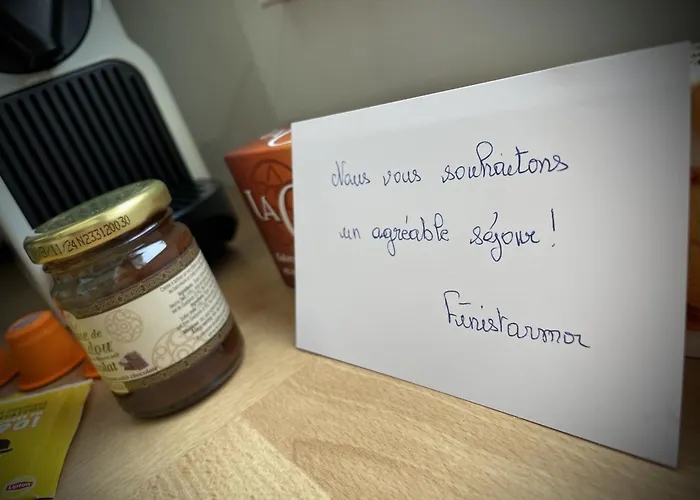 Nous vous souhaitons
un agréable séjour !
Finistarmor
LA
/11/24 N233120030
de
dou
lat
Lipton